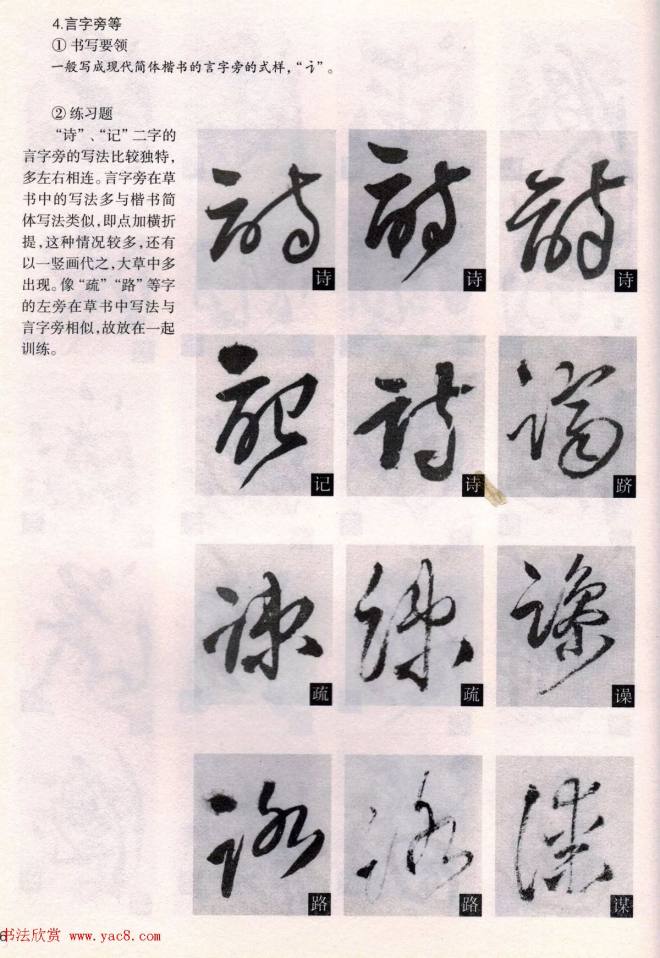 4.言字旁等
① 书写要领
一般写成现代简体楷书的言字旁的式样，“讠”。
② 练习题
“诗”、“记”二字的
言字旁的写法比较独特，
多左右相连。言字旁在草
书中的写法多与楷书简
体写法类似，即点加横折
提，这种情况较多，还有
以一竖画代之，大草中多
出现。像“疏”“路”等字
的左旁在草书中写法与
言字旁相似，故放在一起
训练。
诗 诗 诗
记 诗 跻
疏 疏 谋
路 路 谋
6书法欣赏 www.yac8.com